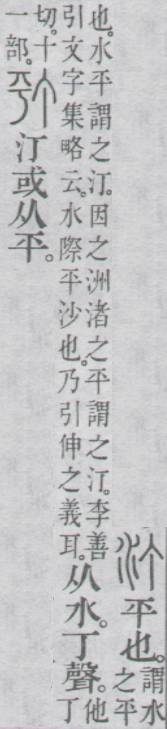 汀 平也。謂水
之平
也。水平謂之汀。因之洲渚之平謂之汀。李善
引文字集略云。水際平沙也。乃引伸之義耳。
从水。丁聲。他
丁
切。十
一部。
汀或从平。